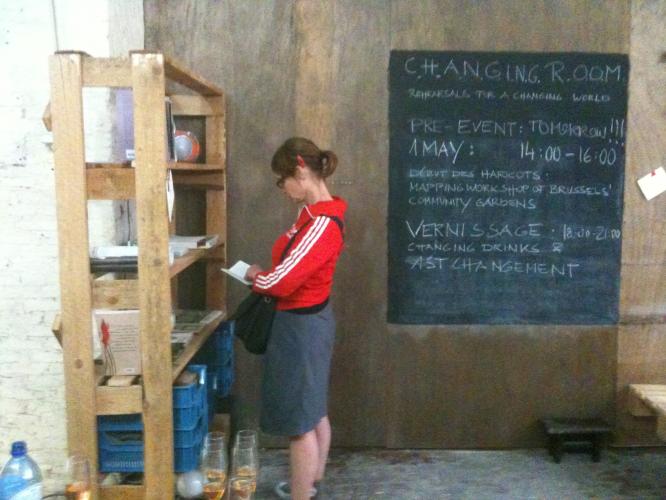 C.H.A.N.G.I.N.G. R.O.O.M.
REHEARSALS FOR A CHANGING WORLD
PRE-EVENT: TOMORROW!!!
1 MAY: 14:00-16:00
DÉBUT DES HARICOTS:
MAPPING WORKSHOP OF BRUSSELS'
COMMUNITY GARDENS
VERNISSAGE: 18:30-21:00
CHANGING DRINKS &
AST CHANGEMENT